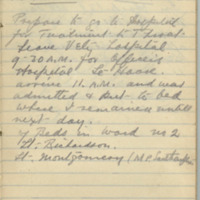 Prepare to go to Hospital
for Treatment to Throat
leave Vety Hospital
9-30 A.M. for Officers
Hospital Le Havre
arrive 11 A.M. and was
admitted & sent to bed
where I remained until
next day.
7 Beds in Ward No 2
Lt. Richardson
Lt. Montgomery